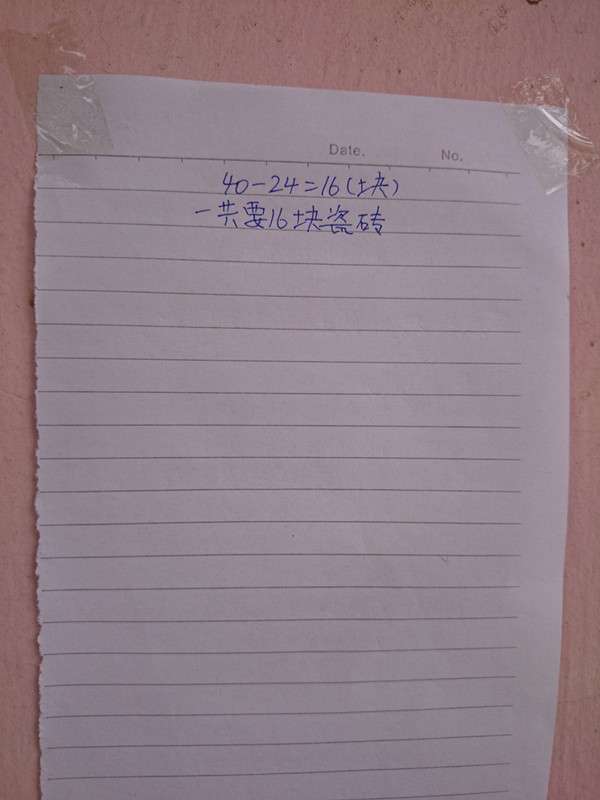 Date. No.
40-24=16(块)
一共要16块瓷砖